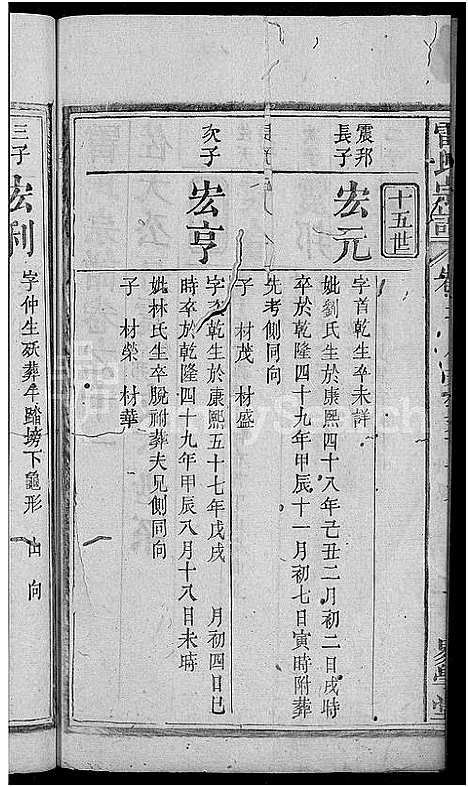 十五世
震邦
長子
宏元
字首乾生卒未詳
妣劉氏生於康熙四十八年己丑二月初二日戌時
卒於乾隆四十九年甲辰十一月初七日寅時附葬
先考側同向
子 材茂 材盛
次子
宏亨
字 乾生於康熙五十七年戊戌 月初四日巳
時卒於乾隆四十九年甲辰八月十八日未時
妣林氏生卒脫祔葬夫兄側同向
子 材榮 材華
三子
宏利
字仲生殀葬牛踏塝下龜形 山 向